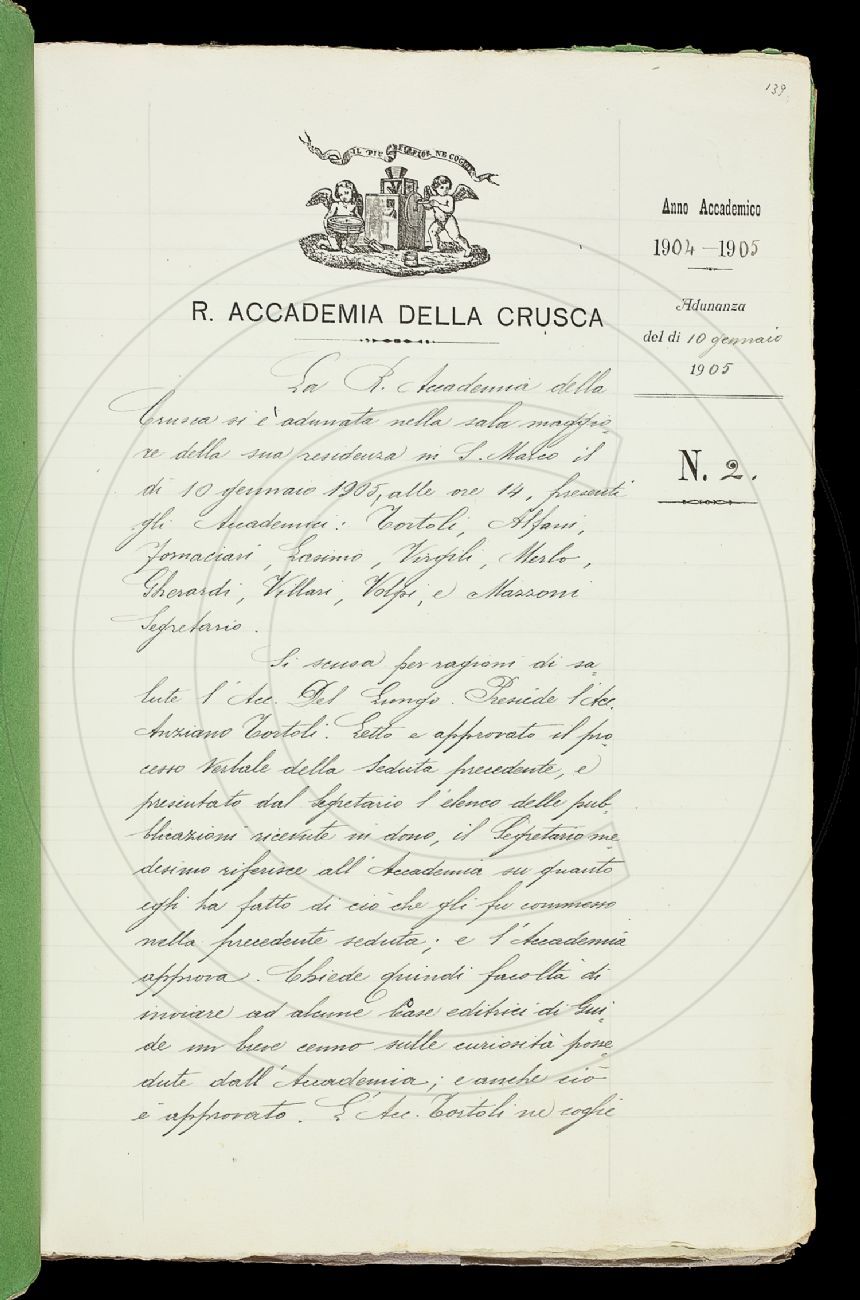 139
IL PIÙ BEL FIOR NE COGLIE
Anno Accademico
1904-1905
Adunanza
del dì 10 gennaio
1905
N. 2.
R. ACCADEMIA DELLA CRUSCA
La R. Accademia della
Crusca si è adunata nella sala maggio-
re della sua residenza in S. Marco il
dì 10 gennaio 1905, alle ore 14, presenti
gli Accademici: Tortoli, Alfani,
Fornaciari, Lasinio, Virgili, Merlo,
Gherardi, Villari, Volpi, e Mazzoni
Segretario.
Si scusa per ragioni di sa-
lute l'Acc. Del Lungo. Presiede l'Acc.
Anziano Tortoli. Letto e approvato il pro-
cesso Verbale della Seduta precedente, e
presentato dal Segretario l'elenco delle pub-
blicazioni ricevute in dono, il Segretario me-
desimo riferisce all'Accademia su quanto
egli ha fatto di ciò che gli fu commesso
nella precedente seduta; e l'Accademia
approva. Chiede quindi facoltà di
inviare ad alcune Case editrici di Gui-
de un breve cenno sulle curiosità posse-
dute dall'Accademia; e anche ciò
è approvato. L'Acc. Tortoli ne coglie